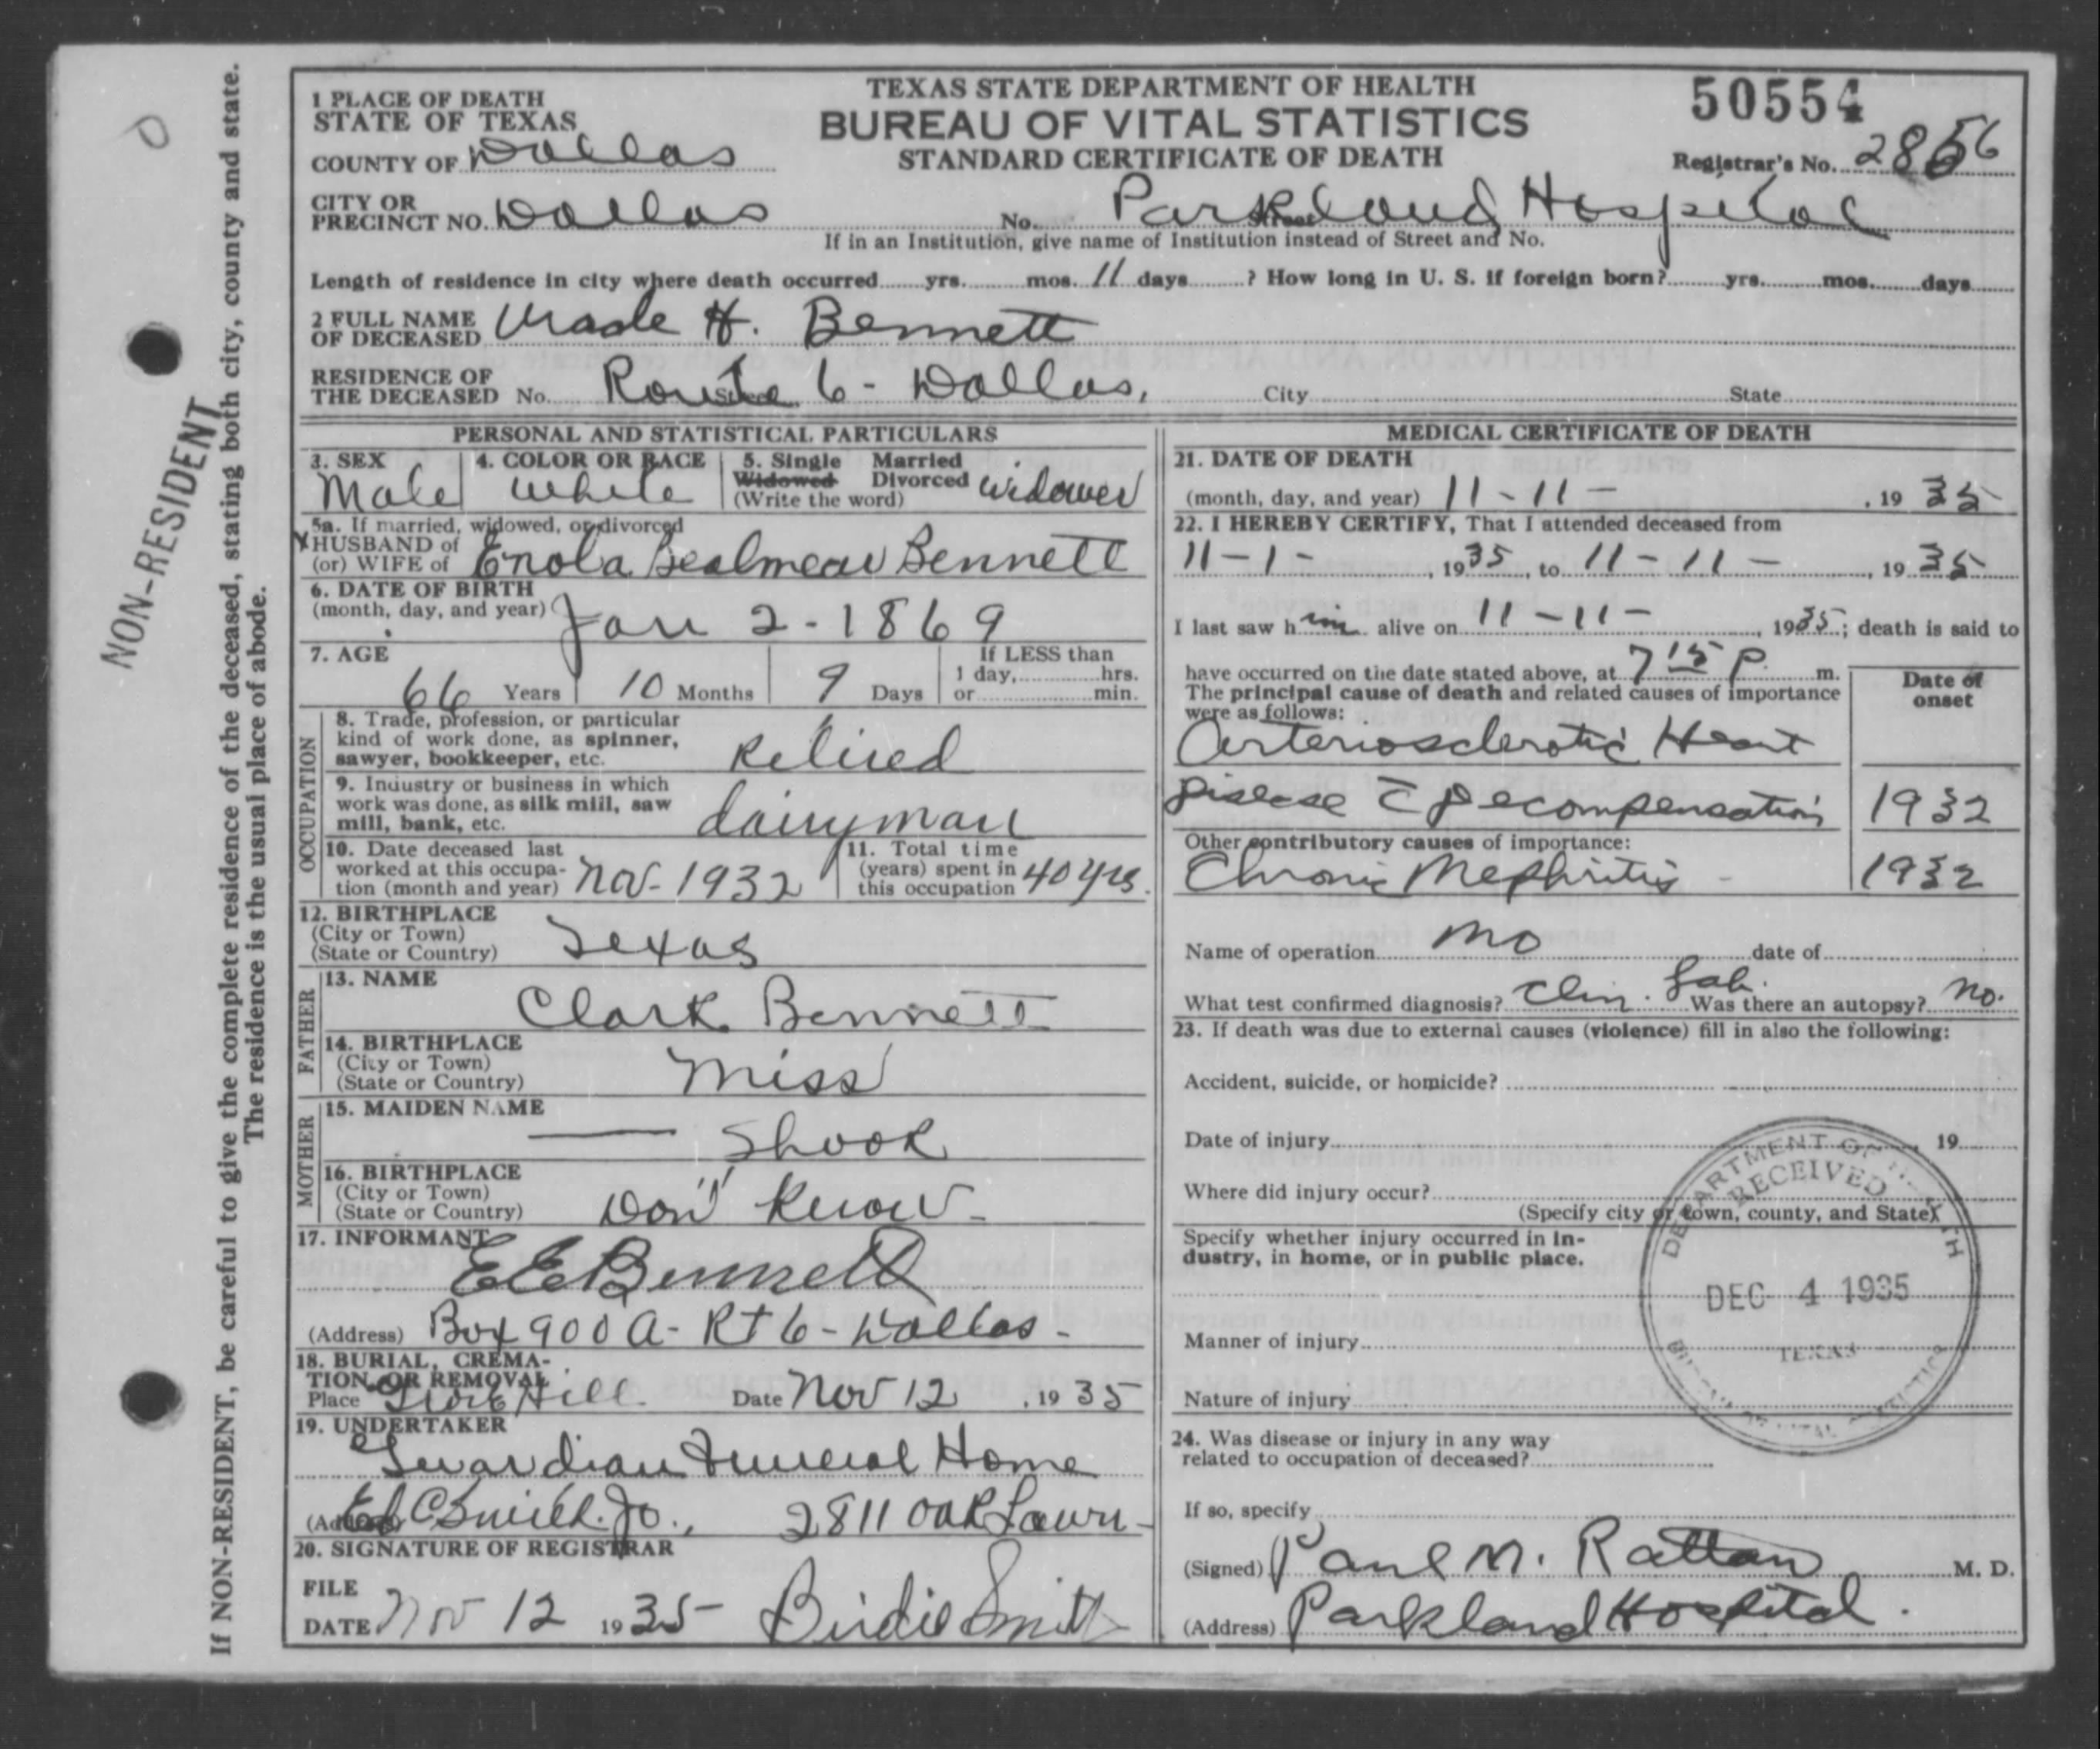 50554
TEXAS STATE DEPARTMENT OF HEALTH
BUREAU OF VITAL STATISTICS
STANDARD CERTIFICATE OF DEATH
Registrar's No. 2856
1 PLACE OF DEATH
STATE OF TEXAS
COUNTY OF Dallas
CITY OR
PRECINCT NO. Dallas No. Parkland Hospital Street
If in an Institution, give name of Institution instead of Street and No.
Length of residence in city where death occurred yrs. mos. 11 days ? How long in U. S. if foreign born? yrs. mos. days
2 FULL NAME
OF DECEASED Wade H. Bennett
RESIDENCE OF
THE DECEASED No. Route 6 - Dallas, City State
PERSONAL AND STATISTICAL PARTICULARS
3. SEX Male
4. COLOR OR RACE White
5. Single Married
Widowed Divorced widower
(Write the word)
5a. If married, widowed, or divorced
HUSBAND of
(or) WIFE of Enola Bennett
6. DATE OF BIRTH
(month, day, and year) Jan 2-1869
7. AGE
66 Years 10 Months 9 Days
If LESS than
1 day, hrs.
or min.
OCCUPATION
8. Trade, profession, or particular
kind of work done, as spinner,
sawyer, bookkeeper, etc. Retired
9. Industry or business in which
work was done, as silk mill, saw
mill, bank, etc. dairyman
10. Date deceased last
worked at this occupa-
tion (month and year) Nov-1932
11. Total time
(years) spent in
this occupation 40 yrs.
12. BIRTHPLACE
(City or Town)
(State or Country) Texas
FATHER
13. NAME
Clark Bennett
14. BIRTHPLACE
(City or Town)
(State or Country) Miss
MOTHER
15. MAIDEN NAME
— Shook
16. BIRTHPLACE
(City or Town)
(State or Country) Don't Know-
17. INFORMANT
E E Bennett
(Address) Box 900A- Rt 6- Dallas-
18. BURIAL, CREMA-
TION OR REMOVAL
Place Hill Date Nov 12, 1935
19. UNDERTAKER
Guardian Funeral Home
(Address) Ed C Smith. Jr., 2811 Oak Lawn-
20. SIGNATURE OF REGISTRAR
FILE
DATE Nov 12 1935 Birdie Smith
MEDICAL CERTIFICATE OF DEATH
21. DATE OF DEATH
(month, day, and year) 11-11-, 1935
22. I HEREBY CERTIFY, That I attended deceased from
11-1-, 1935, to 11-11-, 1935
I last saw him alive on 11-11-, 1935; death is said to
have occurred on the date stated above, at 7 15 P. m.
The principal cause of death and related causes of importance
were as follows:
Date of
onset
Arteriosclerotic Heart
Disease c̄ Decompensation 1932
Other contributory causes of importance:
Chronic Nephritis - 1932
Name of operation no date of
What test confirmed diagnosis? Clin. Lab. Was there an autopsy? no.
23. If death was due to external causes (violence) fill in also the following:
Accident, suicide, or homicide?
Date of injury 19
Where did injury occur?
(Specify city or town, county, and State)
Specify whether injury occurred in in-
dustry, in home, or in public place.
Manner of injury
Nature of injury
24. Was disease or injury in any way
related to occupation of deceased?
If so, specify
(Signed) Paul M. Rattan M. D.
(Address) Parkland Hospital.
DEPARTMENT OF HEALTH
RECEIVED
DEC 4 1935
TEXAS
BUREAU OF VITAL STATISTICS
NON-RESIDENT
If NON-RESIDENT, be careful to give the complete residence of the deceased, stating both city, county and state.
The residence is the usual place of abode.